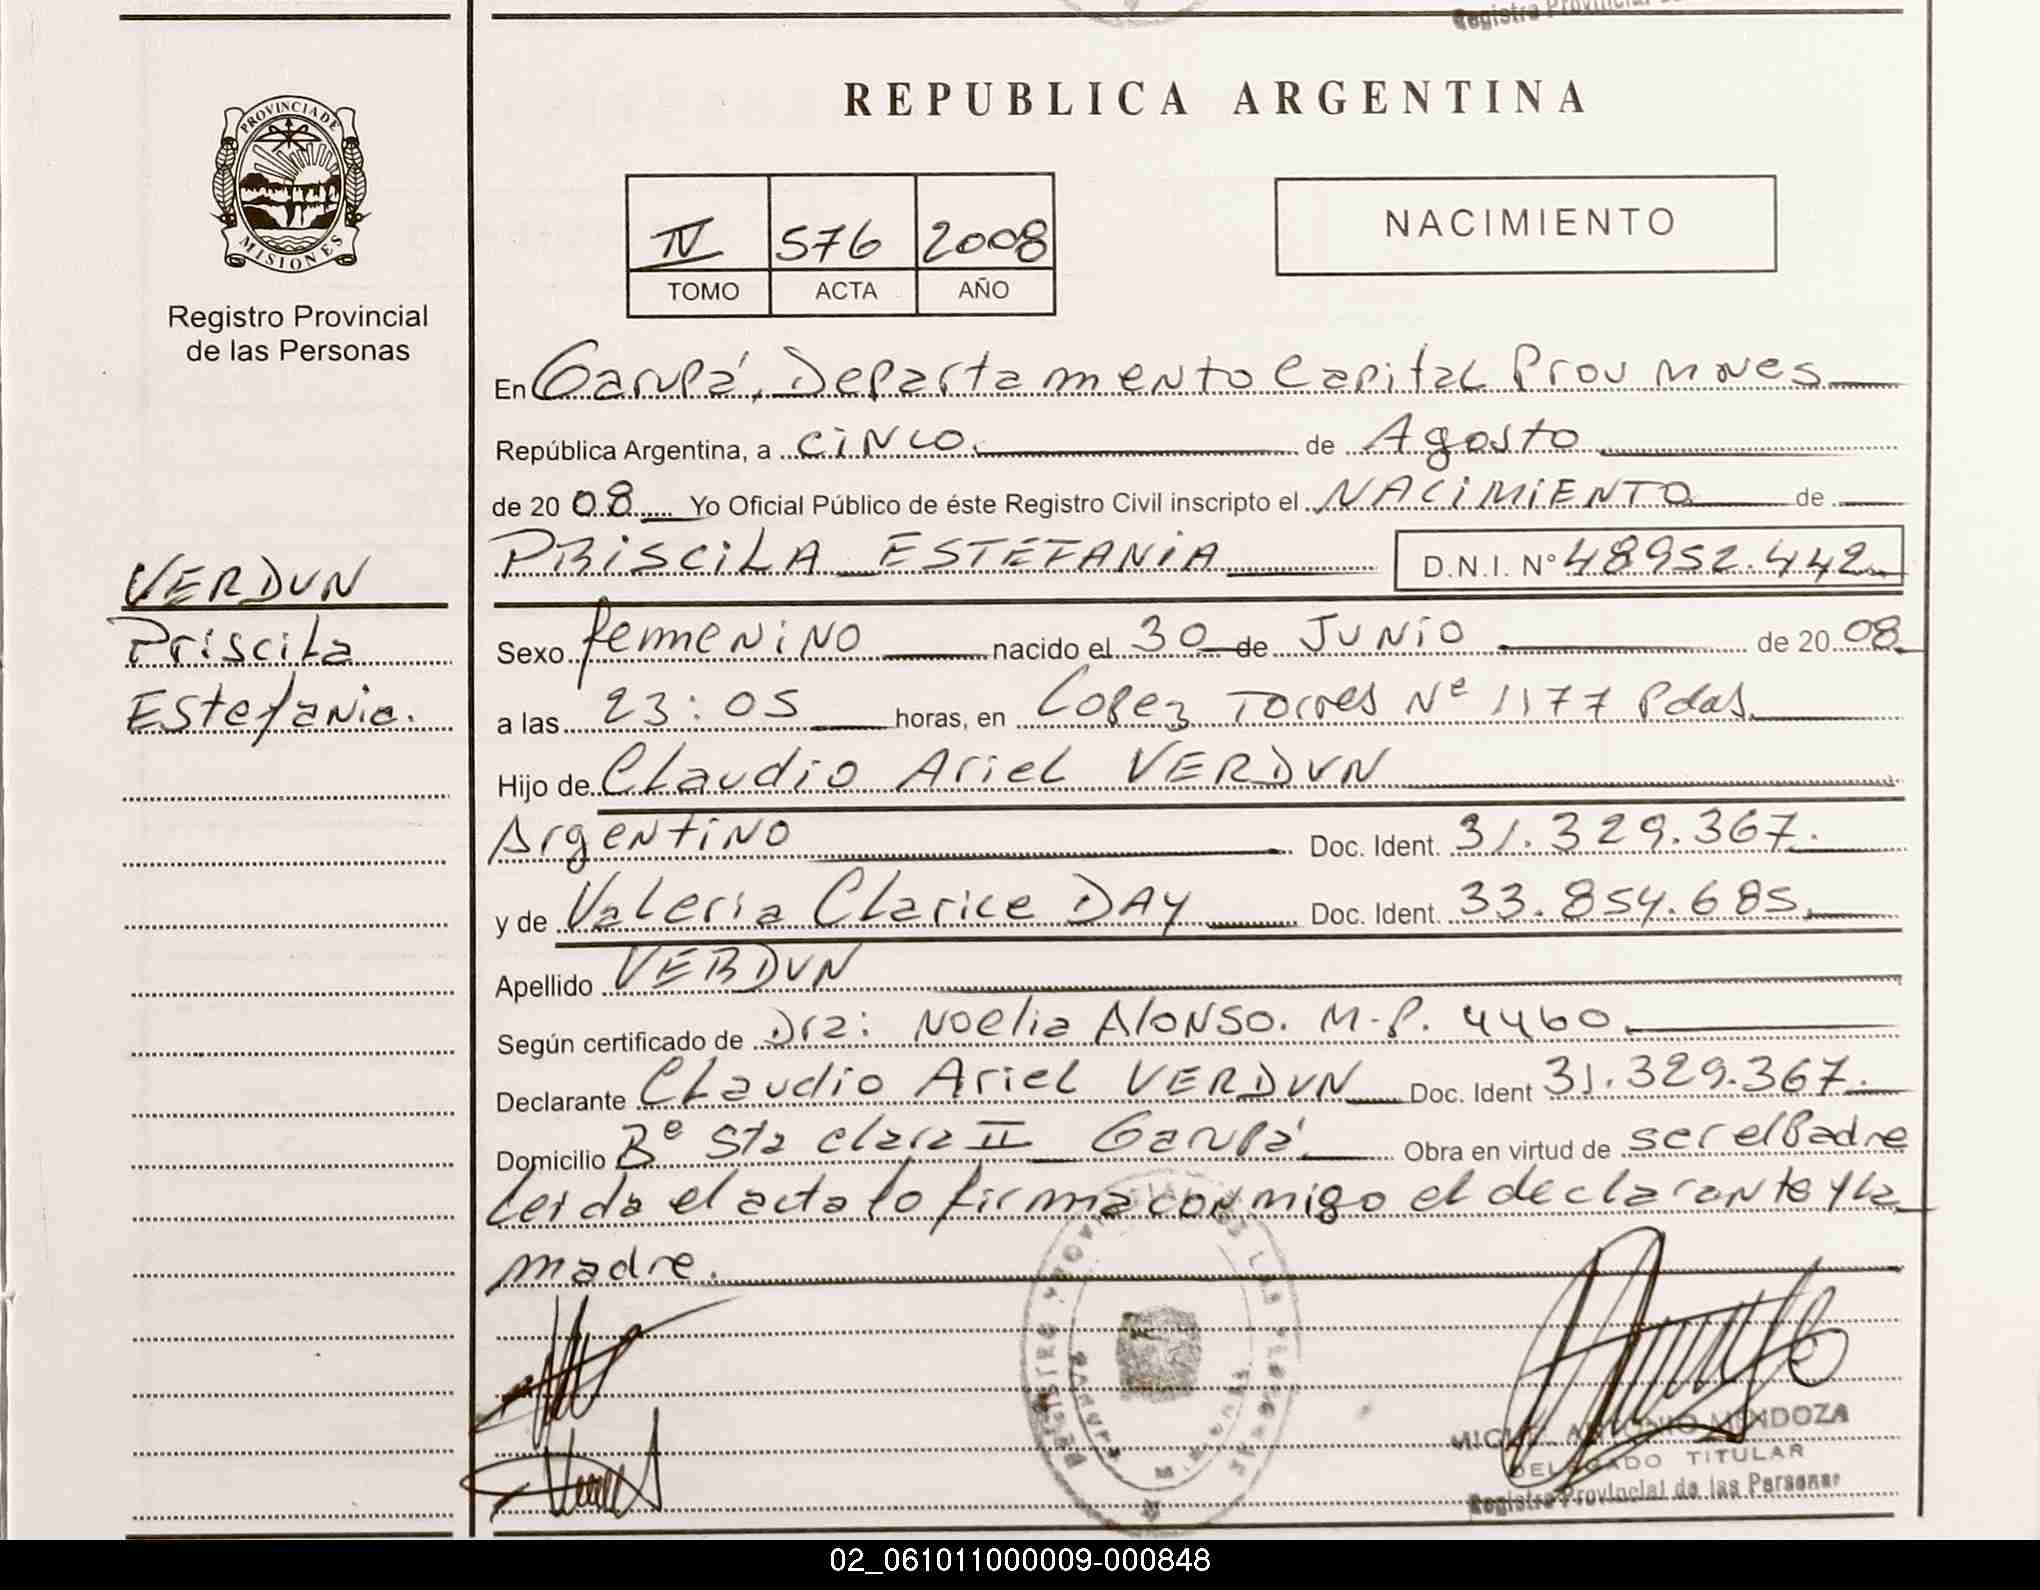 Registro Provincial
REPUBLICA ARGENTINA
PROVINCIA DE
MISIONES
Registro Provincial
de las Personas
IV 576 2008
TOMO ACTA AÑO
NACIMIENTO
En Garupá, Departamento Capital Prov Mnes
República Argentina, a cinco de Agosto
de 2008 Yo Oficial Público de éste Registro Civil inscripto el NACIMIENTO de
PRISCILA ESTEFANIA D.N.I. N° 48952.442
VERDUN
Priscila
Estefania.
Sexo femenino nacido el 30 de Junio de 2008
a las 23:05 horas, en Lopez Torres Nº 1177 Pdas.
Hijo de Claudio Ariel VERDUN
Argentino Doc. Ident. 31.329.367.
y de Valeria Clarice DAY Doc. Ident. 33.854.685.
Apellido VERDUN
Según certificado de Dra: Noelia Alonso. M.P. 4460.
Declarante Claudio Ariel VERDUN Doc. Ident 31.329.367.
Domicilio Bº Sta Clara II Garupá Obra en virtud de ser el Padre
Leida el acta lo firma conmigo el declarante y la
madre.
MIGUEL ANTONIO MENDOZA
DELEGADO TITULAR
Registro Provincial de las Personas
02_061011000009-000848